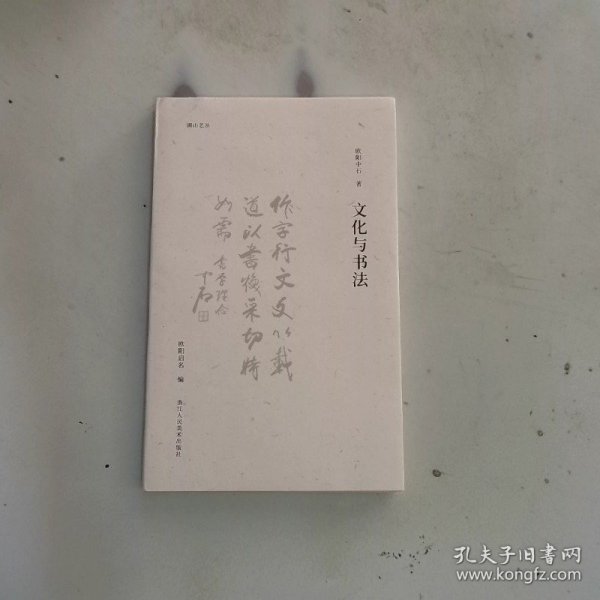 湖山艺丛
欧阳中石 著
文化与书法
作字行文文以载
道以書焕采切時
如需 書學院合
中石
欧阳启名 编
浙江人民美术出版社
孔夫子旧书网
www.kongfz.com